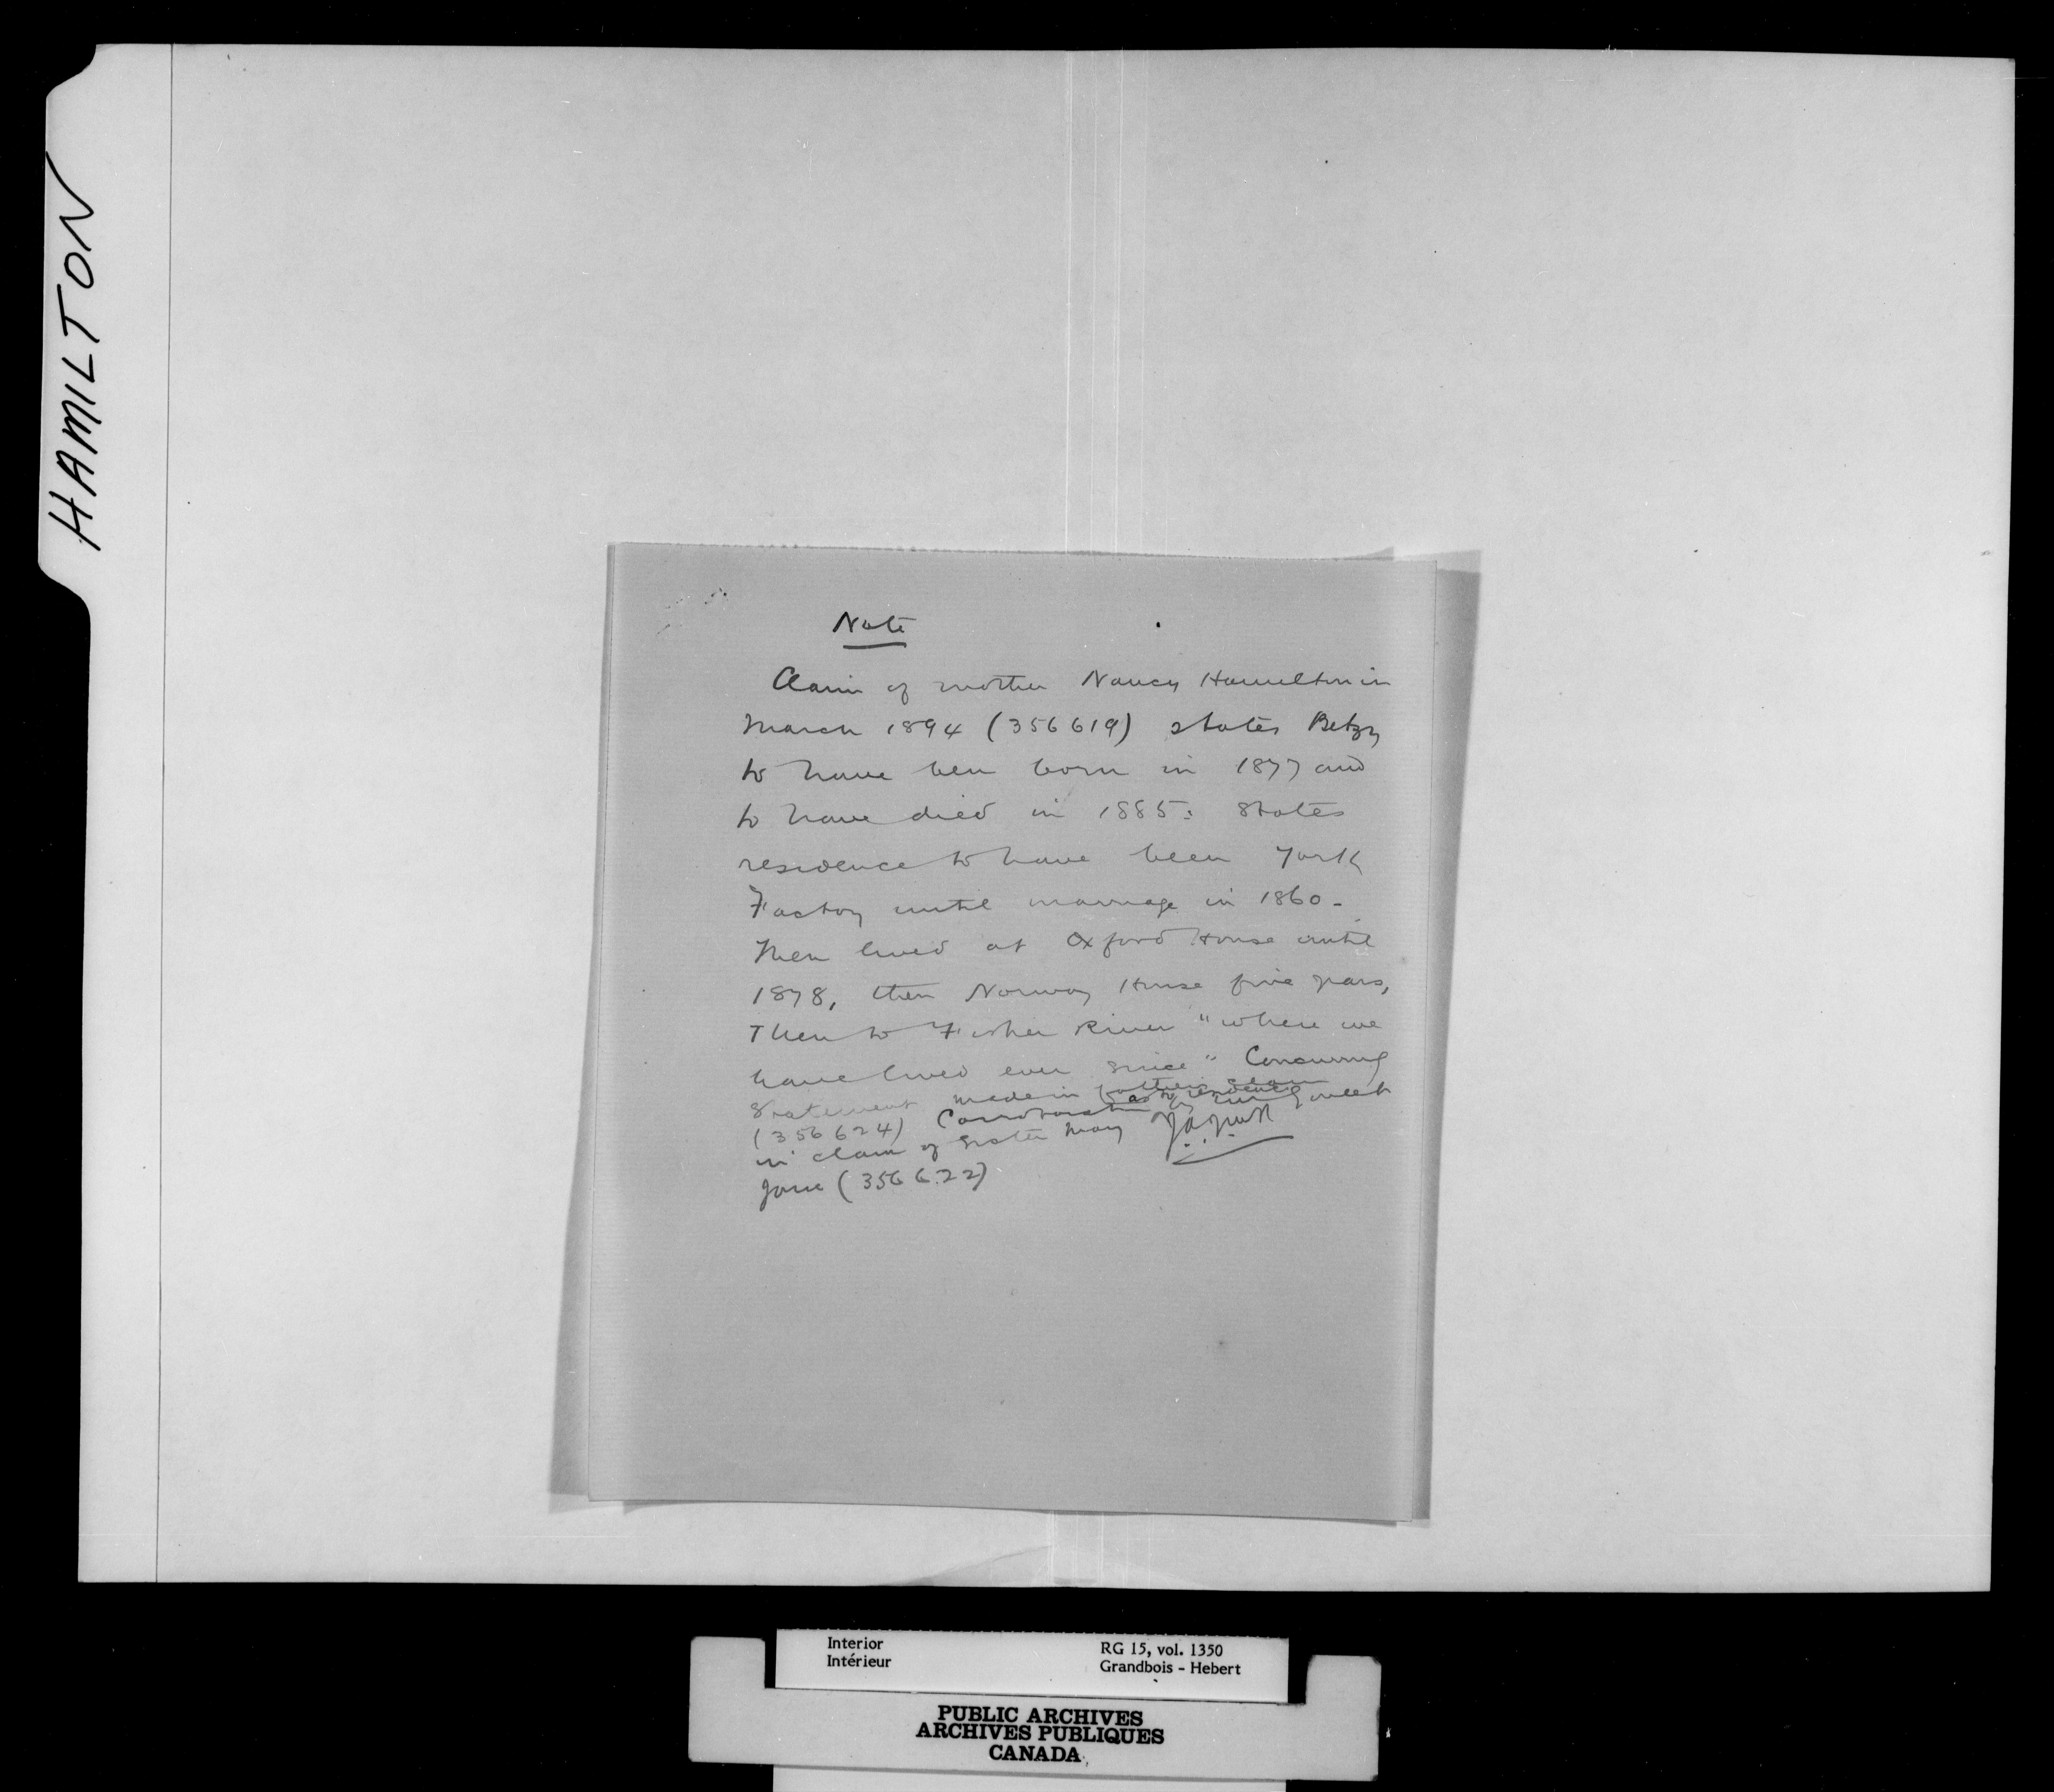 HAMILTON
Note
Claim of mother Nancy Hamilton in
March 1894 (356619) states Betsy
to have been born in 1877 and
to have died in 1885: States
residence to have been York
Factory until marriage in 1860-
Then lived at Oxford House until
1878, then Norway House five years,
Then to Fisher River "where we
have lived ever since" Concurring
Statement made in father's claim
(356624) Corroboration as to residence by
in claim of Sister Mary
Jane (356622)
Interior
Intérieur
RG 15, vol. 1350
Grandbois - Hebert
PUBLIC ARCHIVES
ARCHIVES PUBLIQUES
CANADA